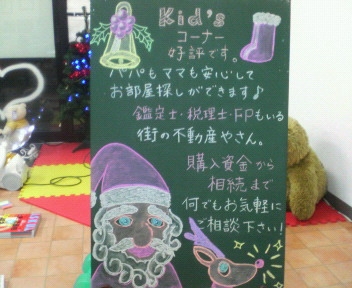 Kid's
コーナー
好評です。
パパもママも安心して
お部屋探しができます♪
鑑定士・税理士・FPもいる
街の不動産やさん。
購入資金から
相続まで
何でもお気軽に
ご相談下さい!